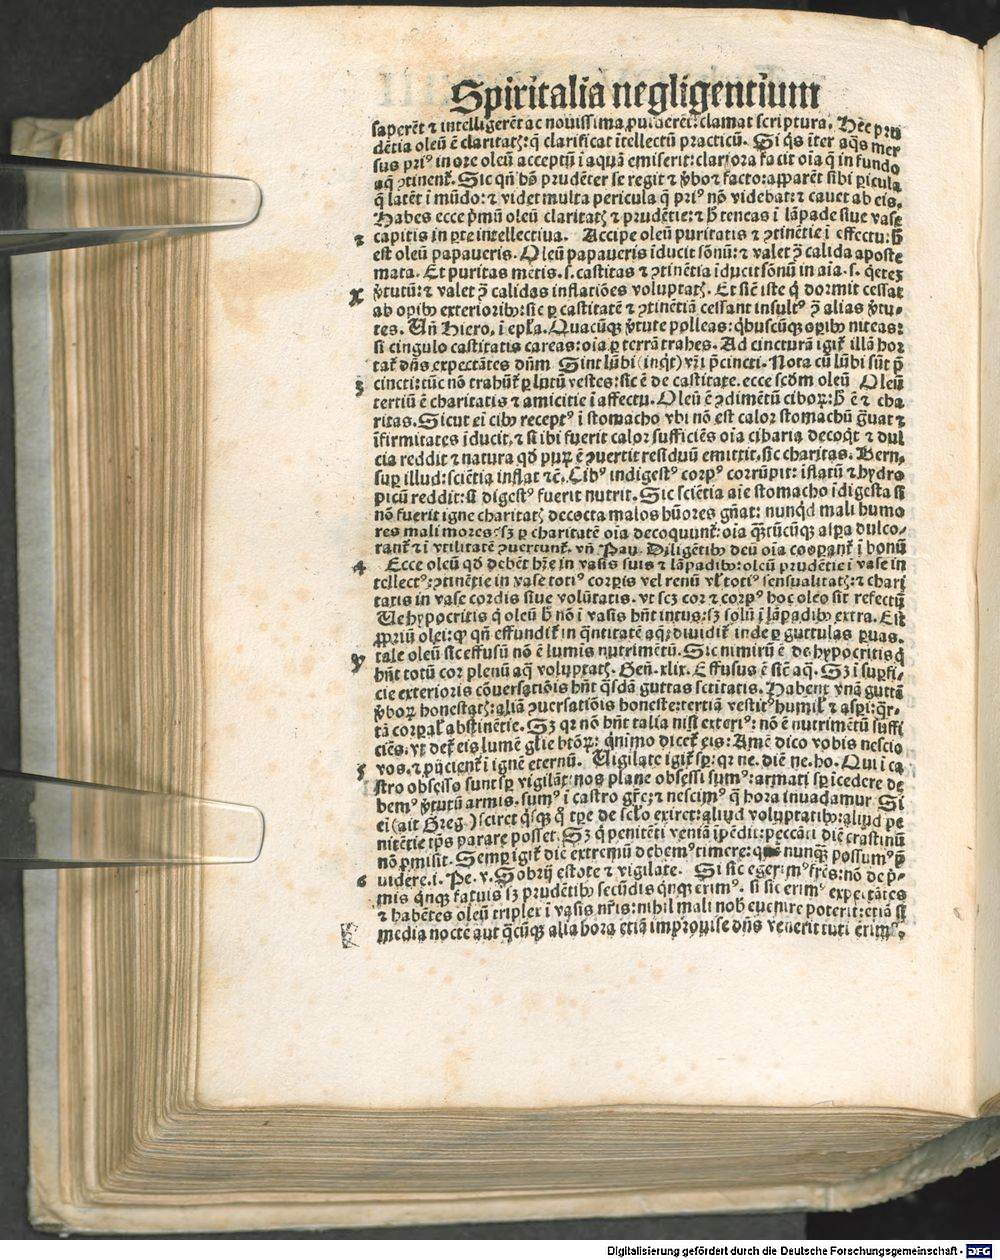 Spiritalia negligentium
saperēt ⁊ intelligerēt ac nouissima ꝓuiderēt: clamat scriptura. Hec pru
dētia oleū ē claritatꝭ: q̄ clarificat ītellectū practicū. Si q̇s īter aq̄s mer
sus priꝰ in ore oleū acceptū ī aquā emiserit: clariora facit oīa q̄ in fundo
aq̄ ꝯtinent᷑. Sic qn̄ hō prudēter se regit ⁊ v̄bo ⁊ facto: apparēt sibi ꝑicula
q̄ latēt ī mūdo: ⁊ videt multa pericula q̄ priꝰ nō videbat: ⁊ cauet ab eis.
Habes ecce p̄mū oleū claritatꝭ ⁊ prudētie: ⁊ h̄ teneas ī lāpade siue vase
2 capitis in ꝑte intellectiua. Accipe oleū puritatis ⁊ ꝯtinētie ī effectu: h̄
est oleū papaueris. Oleū papaueris īducit sōnū: ⁊ valet ꝯ̄ calida aposte
mata. Et puritas mētis .s. castitas ⁊ ꝯtinētia īducit sōnū in aīa .s. q̇etez
X v̄tutū: ⁊ valet ꝯ̄ calidas inflatiōes voluptatꝭ. Et sic̄ iste q̇ dormit cessat
ab oꝑibꝰ exterioribꝰ: sic ꝑ castitatē ⁊ ꝯtinētiā cessant insultꝰ ꝯ̄ alias v̄tu-
tes. Un̄ Hiero. ī epl̄a. Quacūqꝫ v̄tute polleas: q̇buscūqꝫ oꝑibꝰ niteas:
si cingulo castitatis careas: oīa ꝑ terrā trahes. Ad cincturā igit᷑ illā hor
tat᷑ dn̄s expectātes dn̄m Sint lūbi (inq̇t) vr̄i p̄cincti. Nota cū lūbi sūt p̄
3 cincti: tūc nō trahūt᷑ ꝑ lutū vestes: sic ē de castitate. ecce scd̄m oleū Oleū
tertiū ē charitatis ⁊ amicitie ī affectu. Oleū ē ꝯdimētū ciboꝝ: h̄ ē ⁊ cha
ritas. Sicut ei cibꝰ receptꝰ ī stomacho vbi nō est calor stomachū g̃uat ⁊
īfirmitates īducit, ⁊ si ibi fuerit calor sufficiēs oīa cibaria decoq̇t ⁊ dul
cia reddit ⁊ natura qd̄ puꝝ ē ꝯuertit residuū emittit, sic charitas. Bern.
suꝑ illud: sciētia inflat ⁊c̄. Cibꝰ indigestꝰ corpꝰ corrūpit: īflatū ⁊ hydro
picū reddit: si digestꝰ fuerit nutrit. Sic sciētia aīe stomacho īdigesta si
nō fuerit igne charitatꝭ decocta malos hūores gn̄at: nunqd̄ mali humo
res mali mores: sꝫ ꝑ charitatē oīa decoquunt᷑: oīa q̄tūcūqꝫ asꝑa dulco-
rant᷑ ⁊ ī vtilitatē ꝯuertunt᷑. vn̄ Pau. Diligētibꝰ deū oīa cooꝑant᷑ ī bonū
4 Ecce oleū qd̄ debēt hr̄e in vasis suis ⁊ lāpadibꝰ: oleū prudētie ī vase in
tellectꝰ: ꝯtinētie in vase totiꝰ corꝑis vel renū vl̄ totiꝰ sensualitatꝭ: ⁊ chari
tatis in vase cordis siue volūtatis. vt scꝫ cor ⁊ corpꝰ hoc oleo sit refectū
Ue hypocritis q̇ oleū h̄ nō ī vasis hn̄t intus: sꝫ solū ī lāpadibꝰ extra. Est
ꝓpriū olei: ꝙ qn̄ effundit᷑ in q̄ntitatē aq̄: diuidit᷑ inde ꝑ guttulas ꝑuas.
y tale oleū sic effusū nō ē lumīs nutrimētū. Sic nimirū ē de hypocritis q̇
hn̄t totū cor plenū aq̄ voluptatꝭ. Gen̄. xlix. Effusus ē sic̄ aq̄. Sꝫ ī suꝑfi-
cie exterioris cōuersatiōis hn̄t q̄sdā guttas sctitatis. Habent vnā guttā
v̄boꝝ honestatꝭ: aliā ꝯuersatiōis honeste: tertiā vestitꝰ humil᷑ ⁊ asꝑi: q̇r-
tā corꝑal᷑ abstinētie. Sꝫ qr nō hn̄t talia nisi exteriꝰ: nō ē nutrimētū suffi
ciēs, vt det᷑ eis lumē gl̄ie btōꝝ: q̇nimo dicet᷑ eis: Amē dico vobis nescio
vos. ⁊ ꝓijcient᷑ ī ignē eternū. Uigilate igit᷑ sꝑ: qr ne. diē ne. ho. Qui ī ca
5 stro obsesso sunt sꝑ vigilāt: nos plane obsessi sumꝰ: armati sꝑ īcedere de
bemꝰ v̄tutū armis. sumꝰ ī castro gr̄e: ⁊ nescimꝰ q̄ hora inuadamur Si
ei (ait Greg.) sciret q̇sqꝫ q̇ tꝑe de sc̄lo exiret: aliud voluptatibꝰ: aliud pe
nitētie tp̄s parare posset. Sꝫ q̇ penitēti veniā spēdit: peccāti diē crastinū
nō ꝓmisit. Semꝑ igit᷑ diē extremū debemꝰ timere: quē nunq̄ possumꝰ p̄
6 uidere. i. Pe. v. Sobrij estote ⁊ vigilate. Si sic egerimꝰ frēs: nō de p̄-
mis q̇nqꝫ fatuis sꝫ prudētibꝰ secūdis q̇nqꝫ erimꝰ. si sic erimꝰ expectātes
⁊ habētes oleū triplex ī vasis nr̄is: nihil mali nob̄ euenire poterit: etiā si
media nocte aut q̄cūqꝫ alia hora etiā improuise dn̄s venerit tuti erimꝰ.
Digitalisierung gefördert durch die Deutsche Forschungsgemeinschaft - DFG